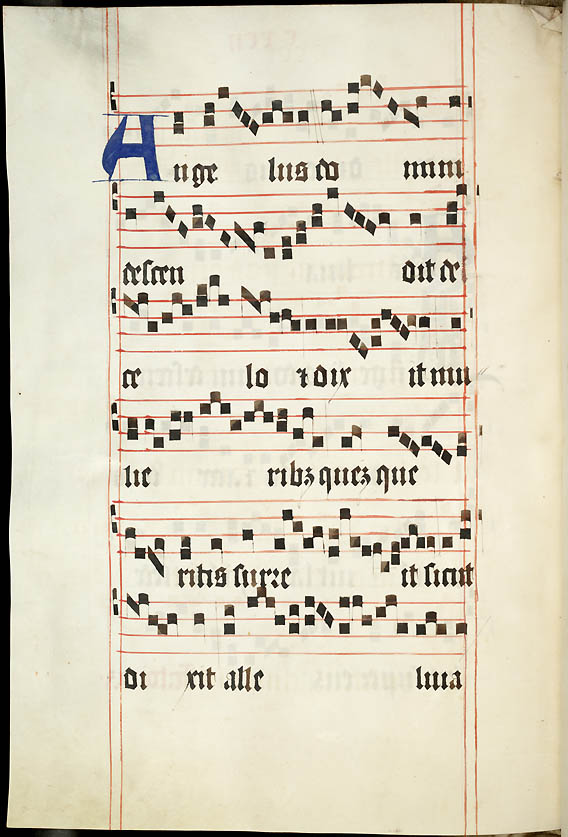 Ange lus do mini
descen dit de
ce lo ⁊ dix it mu
lie ribꝫ queꝫ que
ritis surre it sicut
di xit alle luia